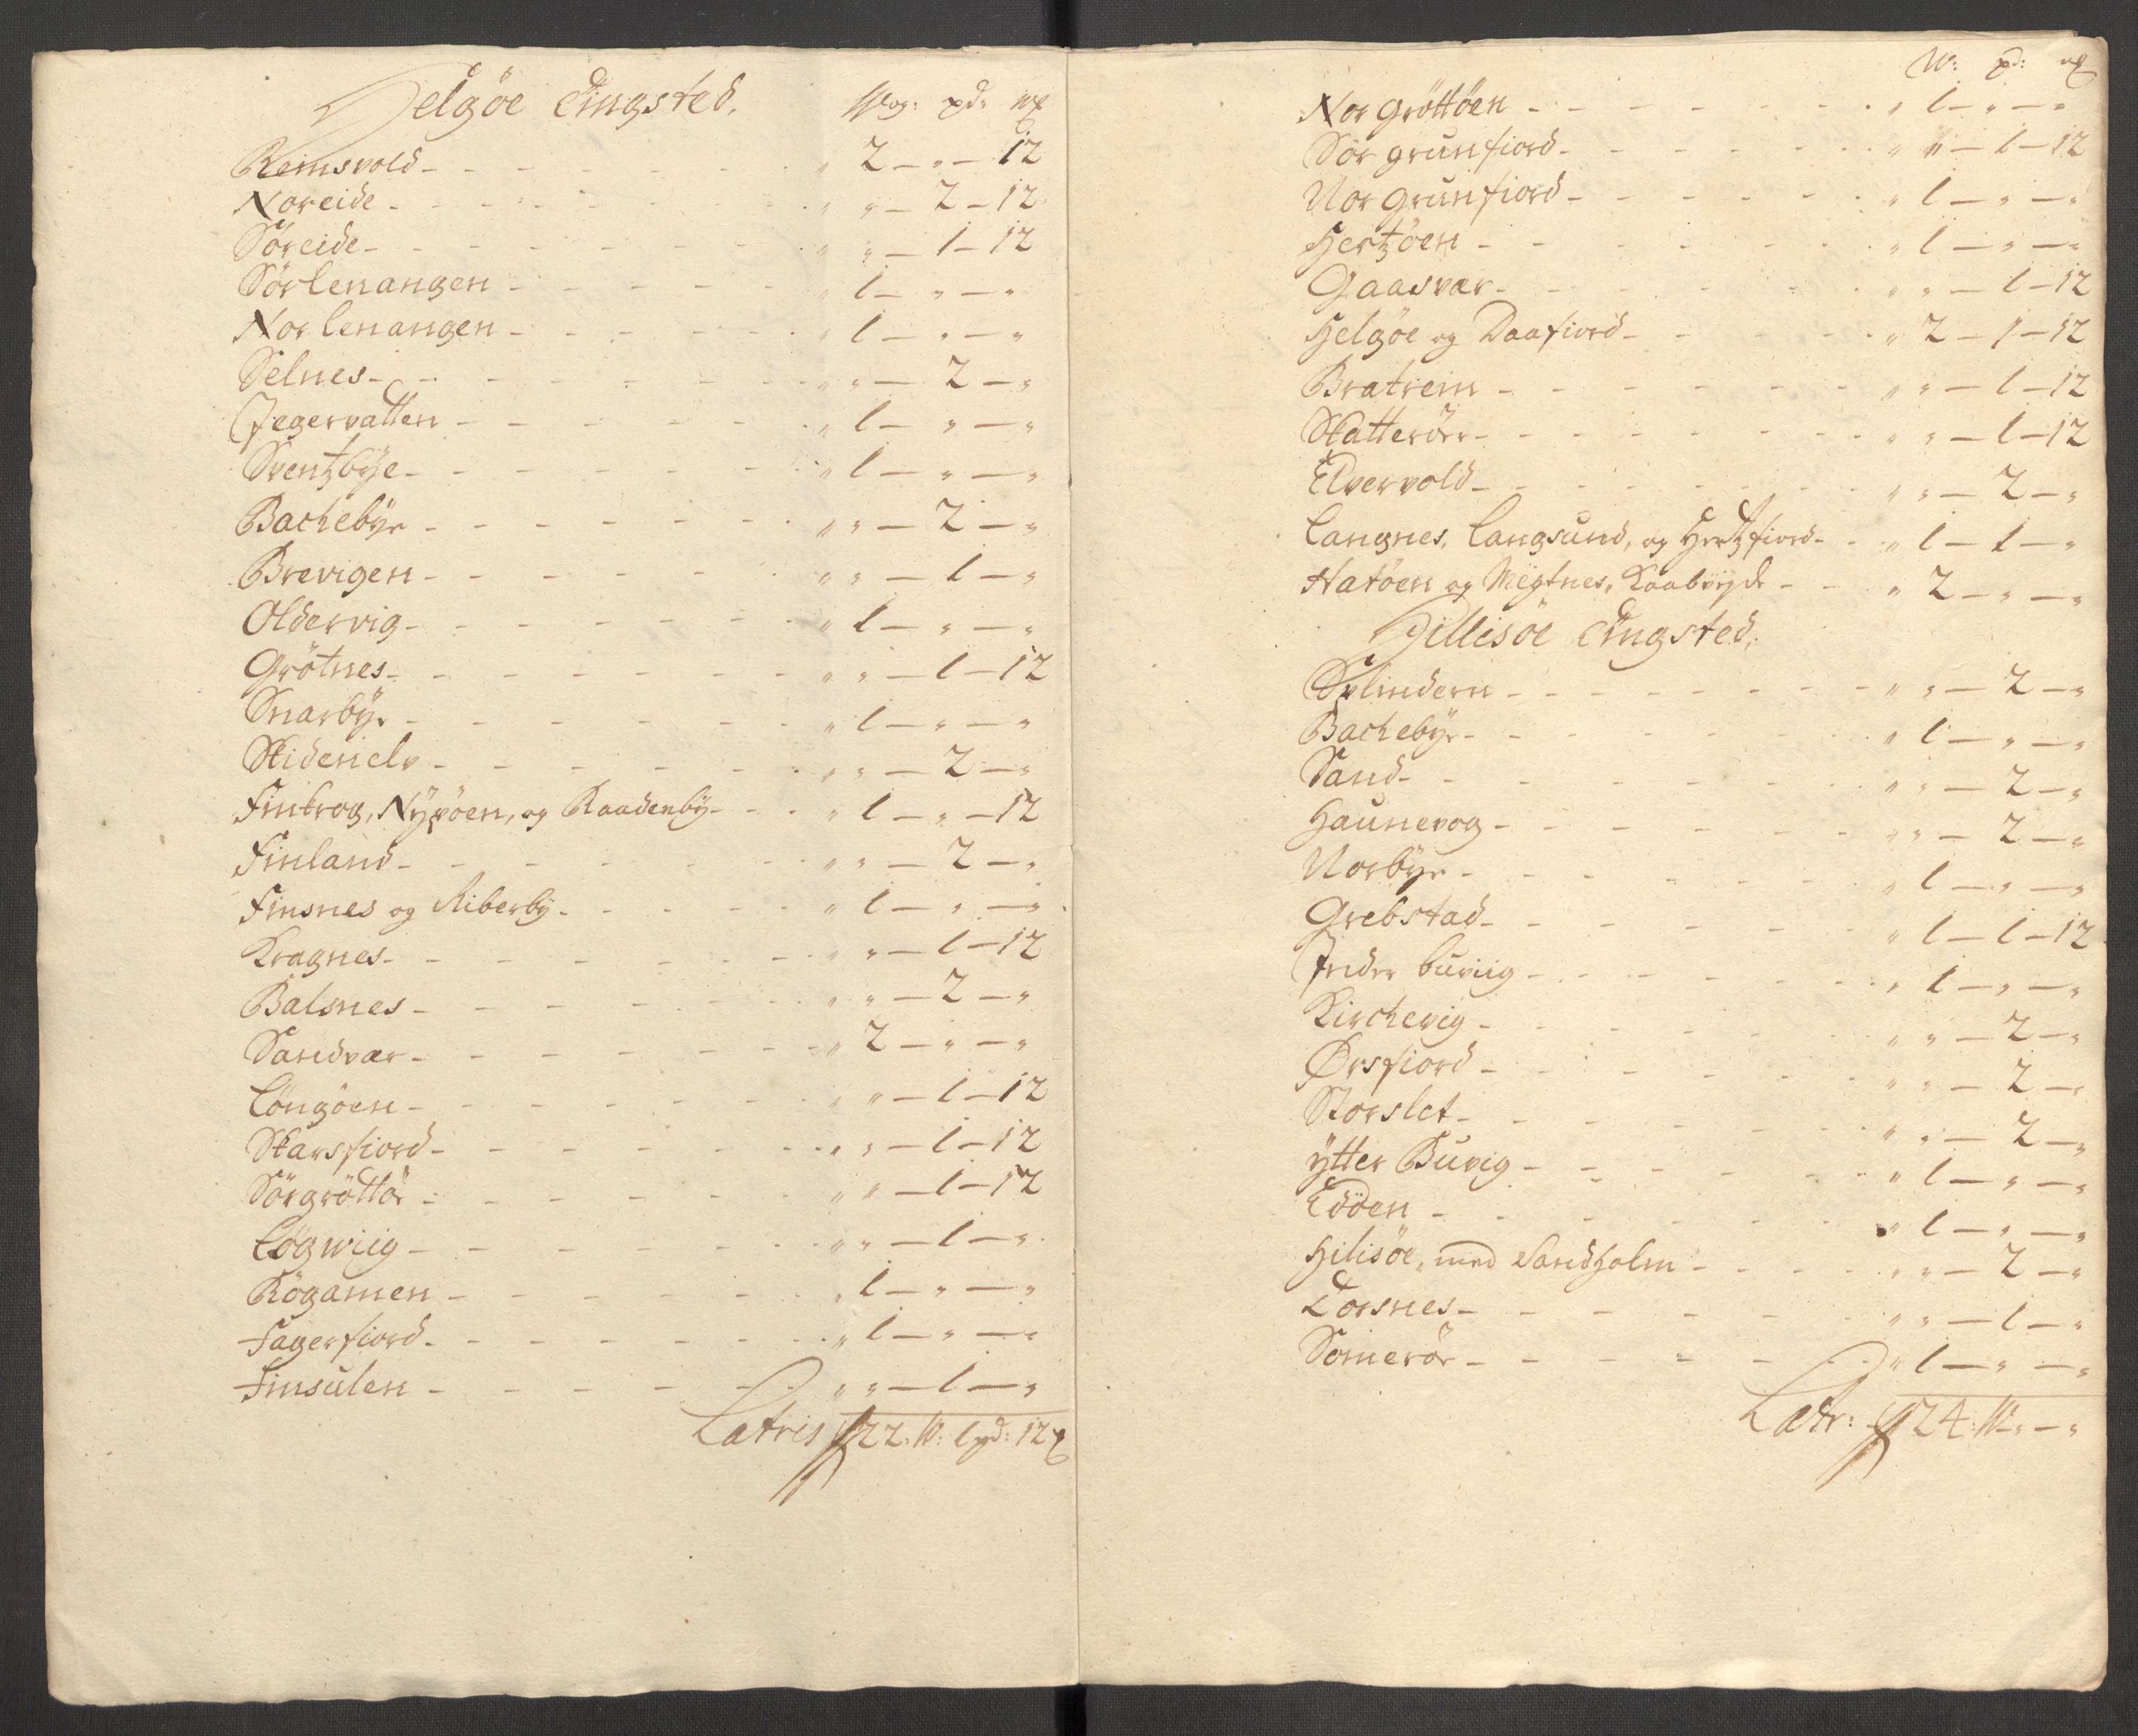 Helgöe Tingsted. Wog: pd: ℔
Remsvold - - - - - - " 2 — " — 12
Noreide - - - - - - " " — 2 — 12
Söreide - - - - - - " " — 1 — 12
Sörlenangen - - - - - " 1 — " — "
Norlenangen - - - - - " 1 — " — "
Selnes - - - - - - " " — 2 — "
Jegervatten - - - - - " 1 — " — "
Sventzbÿe - - - - - - " 1 — " — "
Bachebÿe - - - - - - " " — 2 — "
Brevigen - - - - - - " " — 1 — "
Oldervig - - - - - - " 1 — " — "
Grötnes - - - - - - " " — 1 — 12
Snarbÿe - - - - - - " 1 — " — "
Skidenelv - - - - - - " " — 2 — "
Finkrog, Nÿpöen, og Raadenbÿ - - " 1 — " — 12
Finland - - - - - - " " — 2 — "
Finsnes og Riberbÿ - - - - " 1 — " — "
Kragnes - - - - - - " " — 1 — 12
Balsnes - - - - - - " " — 2 — "
Sandvær - - - - - - " 2 — " — "
Löngöen - - - - - - " " — 1 — 12
Skarsfiord - - - - - - " " — 1 — 12
Sörgröttör - - - - - - " " — 1 — 12
Lögwiig - - - - - - " " — 1 — "
Rögamen - - - - - - " 1 — " — "
Fagerfiord - - - - - - " 1 — " — "
Finsulen - - - - - - " " — 1 — "
Latris 22: W: 1 pd: 12 ℔
W: pd: ℔
Nor gröttöen - - - - - - " 1 — " — "
Sör grunfiord - - - - - " " — 1 — 12
Nor grunfiord - - - - - " 1 — " — "
Hertzöen - - - - - - " 1 — " — "
Gaasvær - - - - - - " " — 1 — 12
Helgöe og Daafiord - - - - " 2 — 1 — 12
Bratrein - - - - - - " " — 1 — 12
Skatterör - - - - - - " " — 1 — 12
Elvervold - - - - - - " " — 2 — "
Langnes, Langsund, og Hertzfiord - - " 1 — 1 — "
Hatöen og Megtnes, Kaabvigde - - " 2 — " — "
Hillisöe Tingsted.
Sylindern - - - - - - " " — 2 — "
Bachebÿe - - - - - - " 1 — " — "
Sand - - - - - - " " — 2 — "
Haunevog - - - - - - " " — 2 — "
Norbÿe - - - - - - " 1 — " — "
Grebstad - - - - - - " 1 — 1 — 12
Inder buviig - - - - - " 1 — " — "
Kirchevig - - - - - - " " — 2 — "
Örsfiord - - - - - - " " — 2 — "
Storslet - - - - - - " " — 2 — "
ÿtter Buvig - - - - - " 1 — " — "
Edöen - - - - - - " 1 — " — "
Hilisöe, med Sandholm - - - " " — 2 — "
Torsnes - - - - - - " " — 1 — "
Somerör - - - - - - " 1 — " — "
Latr: 24: W — " — "